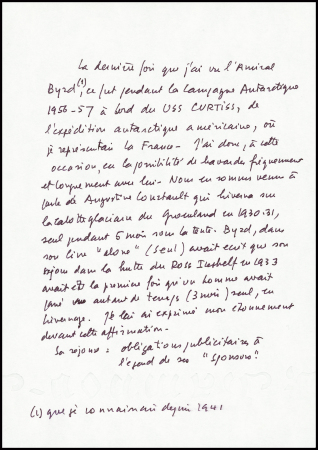 La dernière fois que j'ai vu l'Amiral
Byrd (1), ce fut pendant la Campagne Antarctique
1956-57 à bord du USS CURTISS, de
l'expédition antarctique américaine, où
je représentais la France - J'ai donc, à cette
occasion, eu la possibilité de bavarder fréquemment
et longuement avec lui - Nous en sommes venus à
parler de Augustine Courtault qui hiverna sur
la calotte glaciaire du Groenland en 1930-31,
seul pendant 5 mois sous la tente. Byrd, dans
son livre "alone" (Seul) avait écrit que son
séjour dans la hutte du Ross Iceshelf en 1933
avait été la première fois qu'un homme avait
passé autant de temps (3 mois) seul, en
hivernage. Je lui ai exprimé mon étonnement
devant cette affirmation -
Sa réponse = obligations publicitaires à
l'égard de ses "Sponsors".
(1) que je connaissais depuis 1941